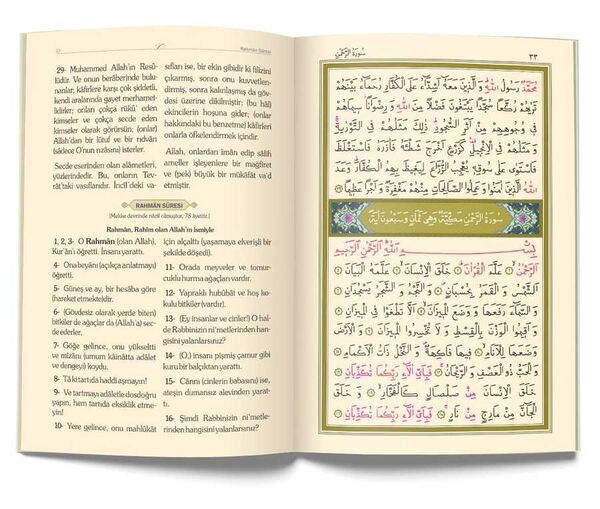 Rahmân Sûresi
29- Muhammed Allah'ın Resû-
lüdür. Ve onun berâberinde bulu-
nanlar; kâfirlere karşı çok şiddetli,
kendi aralarında gayet merhamet-
lidirler; onları çokça rükû' eden
kimseler ve çokça secde eden
kimseler olarak görürsün; (onlar)
Allah'dan bir lütuf ve bir rıdvân
(sâdece O'nun rızâsını) isterler.
Secde eserinden olan alâmetleri,
yüzlerindedir. Bu, onların Tev-
rât'taki vasıflarıdır. İncîl'deki va-
sıfları ise, bir ekin gibidir ki filizini
çıkarmış, sonra onu kuvvetlen-
dirmiş, sonra kalınlaşmış da göv-
desi üzerine dikilmiştir; (bu hâl)
ekincilerin hoşuna gider; (onlar
hakkındaki bu benzetme) kâfirleri
onlarla öfkelendirmek içindir.
Allah, onlardan îmân edip sâlih
ameller işleyenlere bir mağfiret
ve (pek) büyük bir mükâfât va'd
etmiştir.
RAHMÂN SÛRESİ
(Mekke devrinde nâzil olmuştur, 78 âyettir.)
Rahmân, Rahîm olan Allah'ın ismiyle
1, 2, 3- O Rahmân (olan Allah),
Kur'ân'ı öğretti. İnsanı yarattı.
4- Ona beyânı (açıkça anlatmayı)
öğretti.
5- Güneş ve ay, bir hesâba göre
(hareket etmekte)dir.
6- (Gövdesiz olarak yerden biten)
bitkiler de ağaçlar da (Allah'a) sec-
de ederler.
7- Göğe gelince, onu yükseltti
ve mîzânı (umum kâinâtta adâlet
ve dengeyi) koydu.
8- Tâ ki tartıda haddi aşmayın!
9- Ve tartmayı adâletle dosdoğru
yapın, hem tartıda eksiklik etme-
yin!
10- Yere gelince, onu mahlûkāt
için alçalttı (yaşamaya elverişli bir
şekilde döşedi).
11- Orada meyveler ve tomur-
cuklu hurma ağaçları vardır.
12- Yapraklı hubûbât ve hoş ko-
kulu bitkiler (vardır).
13- (Ey insanlar ve cinler!) O hal-
de Rabbinizin ni'metlerinden han-
gisini yalanlarsınız?
14- (O,) İnsanı pişmiş çamur gibi
kuru bir balçıktan yarattı.
15- Cânnı (cinlerin babasını) ise,
ateşin dumansız alevinden yarat-
tı.
16- Şimdi Rabbinizin ni'metle-
rinden hangisini yalanlarsınız?
سُورَةُ الرَّحْمٰنِ
٣٣
مُحَمَّدٌ رَسُولُ اللّٰهِ وَ الَّذِينَ مَعَهُٓ اَشِدَّٓاءُ عَلَى الْكُفَّارِ رُحَمَٓاءُ بَيْنَهُمْ
تَرٰيهُمْ رُكَّعًا سُجَّدًا يَبْتَغُونَ فَضْلًا مِنَ اللّٰهِ وَ رِضْوَانًا سِيمَاهُمْ
فِي وُجُوهِهِمْ مِنْ اَثَرِ السُّجُودِ ذٰلِكَ مَثَلُهُمْ فِي التَّوْرٰيةِ
وَ مَثَلُهُمْ فِي الْاِنْجِيلِ كَزَرْعٍ اَخْرَجَ شَطْاَهُ فَاٰزَرَهُ فَاسْتَغْلَظَ
فَاسْتَوٰى عَلٰى سُوقِهِ يُعْجِبُ الزُّرَّاعَ لِيَغِيظَ بِهِمُ الْكُفَّارَ وَعَدَ
اللّٰهُ الَّذِينَ اٰمَنُوا وَعَمِلُوا الصَّالِحَاتِ مِنْهُمْ مَغْفِرَةً وَ اَجْرًا عَظِيمًا
سُورَةُ الرَّحْمٰنِ مَكِّيَّةٌ وَهِيَ ثَمَانٍ وَسَبْعُونَ اٰيَةً
بِسْمِ اللّٰهِ الرَّحْمٰنِ الرَّحِيمِ
اَلرَّحْمٰنُ عَلَّمَ الْقُرْاٰنَ خَلَقَ الْاِنْسَانَ عَلَّمَهُ الْبَيَانَ
اَلشَّمْسُ وَ الْقَمَرُ بِحُسْبَانٍ وَ النَّجْمُ وَ الشَّجَرُ يَسْجُدَانِ
وَ السَّمَٓاءَ رَفَعَهَا وَ وَضَعَ الْمِيزَانَ اَلَّا تَطْغَوْا فِي الْمِيزَانِ
وَ اَقِيمُوا الْوَزْنَ بِالْقِسْطِ وَ لَا تُخْسِرُوا الْمِيزَانَ وَ الْاَرْضَ
وَضَعَهَا لِلْاَنَامِ فِيهَا فَاكِهَةٌ وَ النَّخْلُ ذَاتُ الْاَكْمَامِ
وَ الْحَبُّ ذُو الْعَصْفِ وَ الرَّيْحَانُ فَبِاَيِّ اٰلَٓاءِ رَبِّكُمَا تُكَذِّبَانِ
خَلَقَ الْاِنْسَانَ مِنْ صَلْصَالٍ كَالْفَخَّارِ وَ خَلَقَ
الْجَٓانَّ مِنْ مَارِجٍ مِنْ نَارٍ فَبِاَيِّ اٰلَٓاءِ رَبِّكُمَا تُكَذِّبَانِ